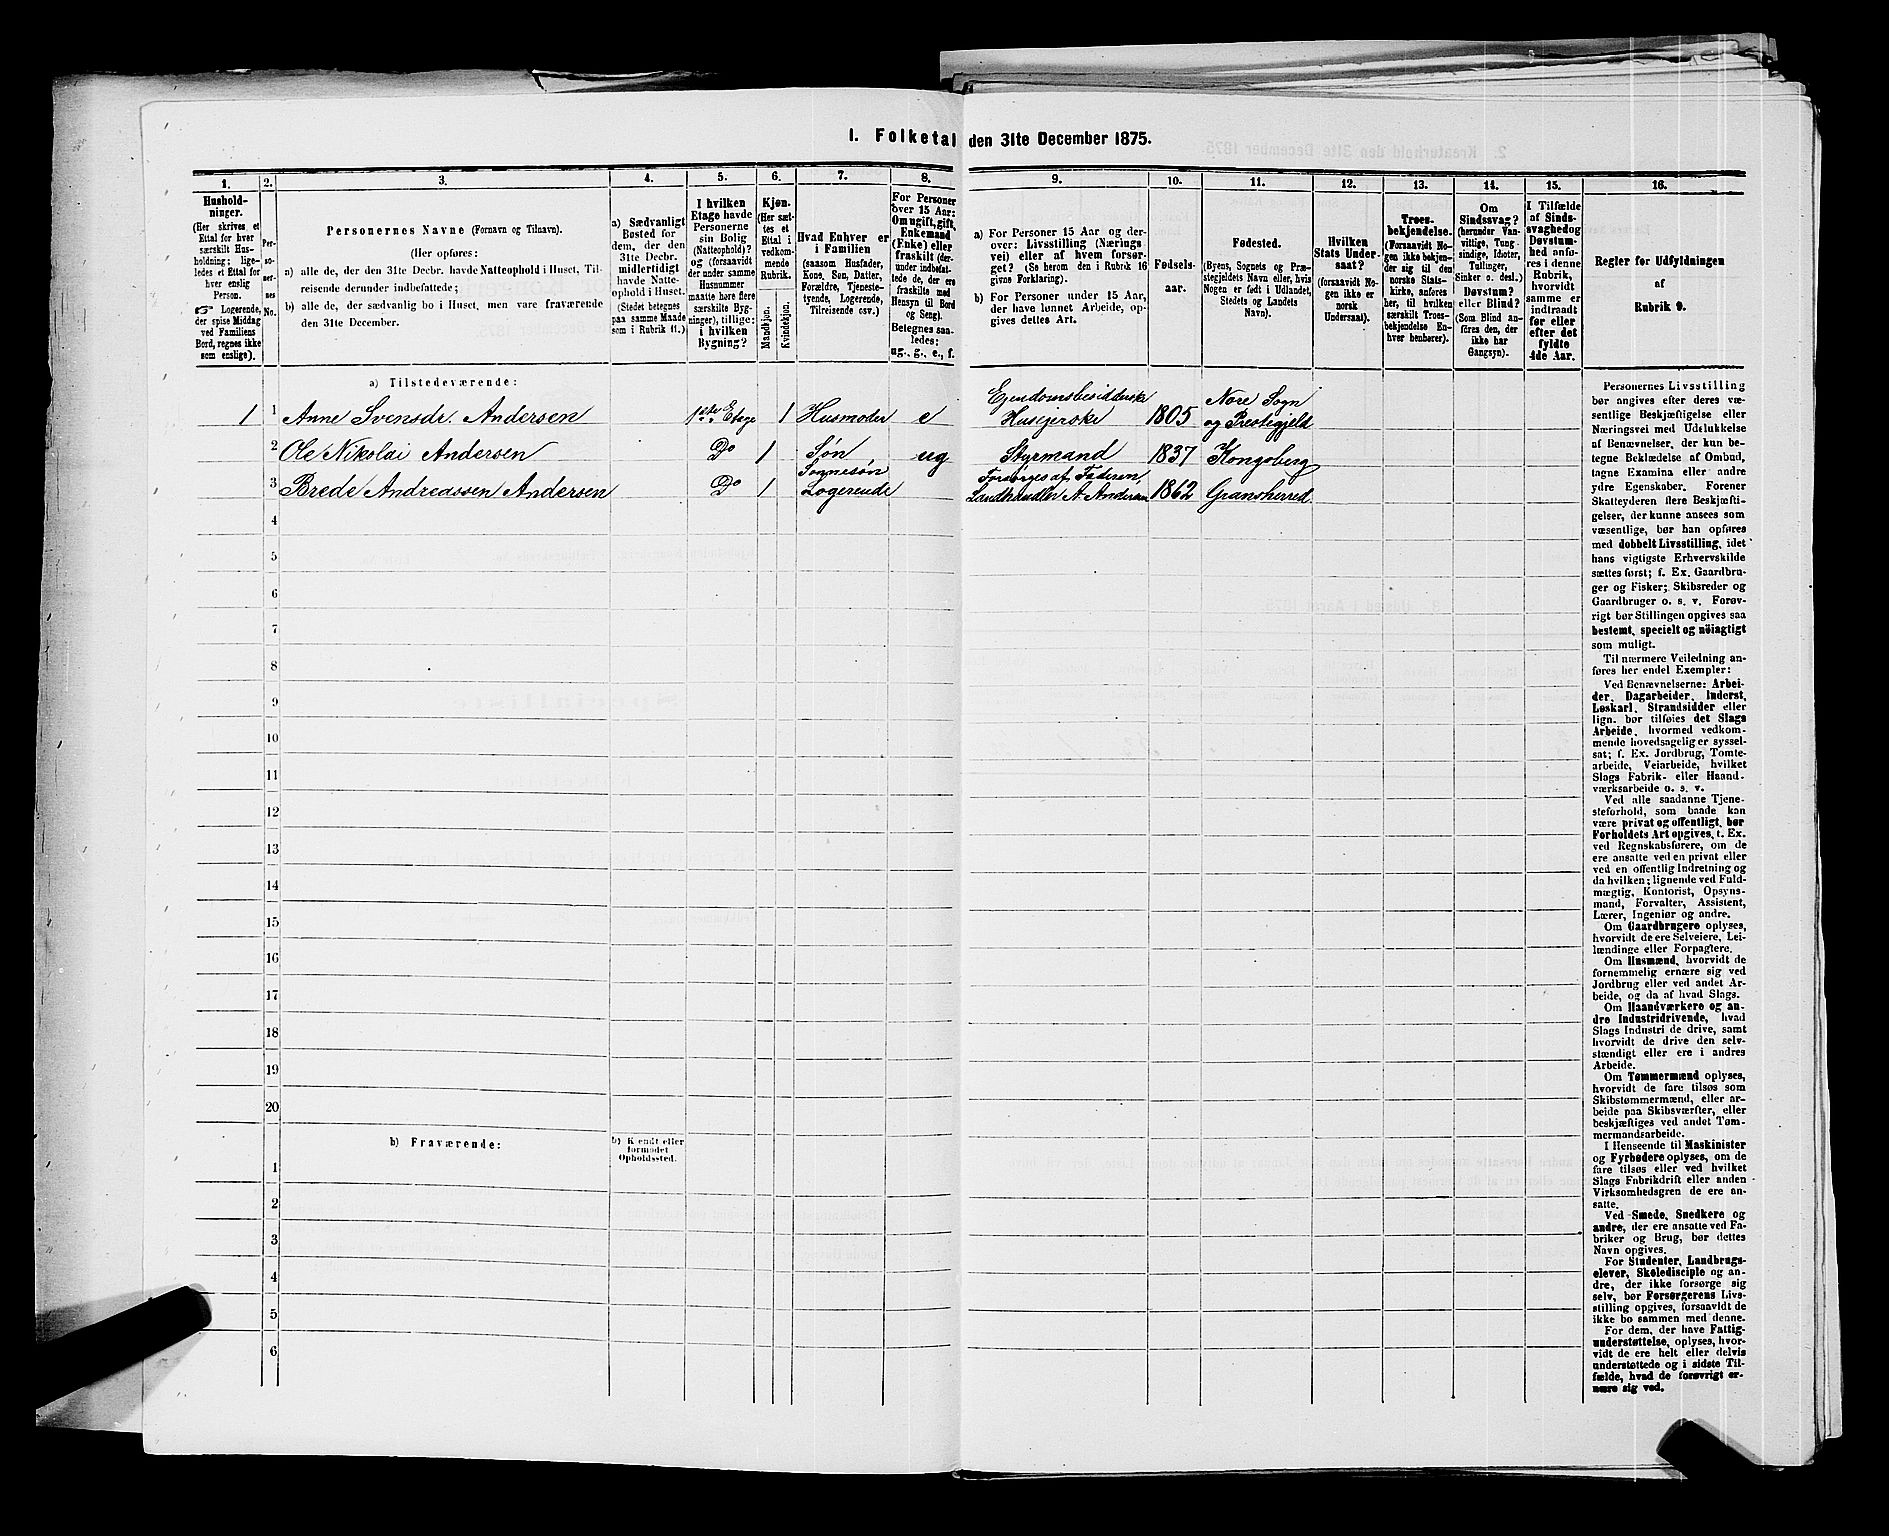 I. Folketal den 31te December 1875.
1.
Hushold-
ninger.
(Her skrives et
Ettal for hver
særskilt Hus-
holdning; lige-
ledes et Ettal for
hver enslig
Person.
☞ Logerende,
der spise Middag
ved Familiens
Bord, regnes ikke
som enslige).
2.
Per-
so-
ner-
nes
No.
3.
Personernes Navne (Fornavn og Tilnavn).
(Her opføres:
a) alle de, der den 31te Decbr. havde Natteophold i Huset, Til-
reisende derunder indbefattede;
b) alle de, der sædvanlig bo i Huset, men vare fraværende
den 31te December.
4.
a) Sædvanligt
Bosted for
dem, der den
31te Decbr.
midlertidigt
havde Natte-
ophold i Huset.
(Stedet betegnes
paa samme Maade
som i Rubrik 11.)
5.
I hvilken
Etage havde
Personerne
sin Bolig
(Natteophold)?
og (forsaavidt
der under samme
Husnummer
maatte høre flere
særskilte Byg-
ninger), tillige:
i hvilken
Bygning?
6.
Kjøn.
(Her sæt-
tes et
Ettal i
vedkom-
mende
Rubrik.
Mandkjøn.
Kvindekjøn.
7.
Hvad Enhver er
i Familien
(saasom Husfader,
Kone, Søn, Datter,
Forældre, Tjeneste-
tyende, Logerende,
Tilreisende osv.)
8.
For Personer
over 15 Aar:
Om ugift, gift,
Enkemand
(Enke) eller
fraskilt (der-
under indbefat-
tede de, der ere
fraskilte med
Hensyn til Bord
og Seng).
Betegnes saa-
ledes:
ug., g., e., f.
9.
a) For Personer 15 Aar og der-
over: Livsstilling (Nærings-
vei) eller af hvem forsør-
get? (Se herom den i Rubrik 16
givne Forklaring).
b) For Personer under 15 Aar,
der have lønnet Arbeide, op-
gives dettes Art.
10.
Fødsels-
aar.
11.
Fødested.
(Byens, Sognets og Præ-
stegjeldets Navn eller, hvis
Nogen er født i Udlandet,
Stedets og Landets
Navn).
12.
Hvilken
Stats Under-
saat?
(forsaavidt No-
gen ikke er
norsk
Undersaat).
13.
Troes-
bekjendelse.
(Forsaavidt No-
gen ikke bekjen-
der sig til den
norske Stats-
kirke, anføres
her, til hvilken
særskilt Troes-
bekjendelse En-
hver henhører).
14.
Om
Sindssvag?
(herunder Van-
vittige, Tung-
sindige, Idioter,
Tullinger,
Sinker o. desl.)
Døvstum?
eller Blind?
(Som Blind an-
føres den, der
ikke har
Gangsyn).
15.
I Tilfælde
af Sinds-
svaghed og
Døvstum-
hed anfø-
res i denne
Rubrik,
hvorvidt
samme er
indtraadt
før eller
efter det
fyldte
4de Aar.
16.
Regler for Udfyldningen
af
Rubrik 9.
a) Tilstedeværende:
1 1 Anne Svensdr. Andersen 1ste Etage 1 Husmoder e Ejendomsbesidderske Husejerske 1805 Nore Sogn og Præstegjeld
2 Ole Nikolai Andersen Do 1 Søn ug Styrmand 1837 Kongsberg
3 Brede Andreassen Andersen Do 1 Sønnesøn Logerende Forsørges af Faderen, Landhandler A. Andersen 1862 Gransherred
4
5
6
7
8
9
10
11
12
13
14
15
16
17
18
19
20
b) Fraværende:
b) Kjendt eller
formodet
Opholdssted.
1
2
3
4
5
6
Personernes Livsstilling
bør angives efter deres væ-
sentlige Beskjæftigelse eller
Næringsvei med Udelukkelse
af Benævnelser, der kun be-
tegne Beklædelse af Ombud,
tagne Examina eller andre
ydre Egenskaber. Forener
Skatteyderen flere Beskjæfti-
gelser, der kunne ansees som
væsentlige, bør han opføres
med dobbelt Livsstilling, idet
hans vigtigste Erhvervskilde
sættes først; f. Ex. Gaardbru-
ger og Fisker; Skibsreder og
Gaardbruger o. s. v. Forøv-
rigt bør Stillingen opgives saa
bestemt, specielt og nöiagtigt
som muligt.
Til nærmere Veiledning an-
føres her endel Exempler:
Ved Benævnelserne: Arbei-
der, Dagarbeider, Inderst,
Løskarl, Strandsidder eller
lign. bør tilføies det Slags
Arbeide, hvormed vedkom-
mende hovedsagelig er syssel-
sat; f. Ex. Jordbrug, Tomte-
arbeide, Veiarbeide, hvilket
Slags Fabrik- eller Haand-
værksarbeide o. s. v.
Ved alle saadanne Tjene-
steforhold, som baade kan
være privat og offentligt, bør
Forholdets Art opgives, t. Ex.
ved Regnskabsførere, om de
ere ansatte ved en privat eller
ved en offentlig Indretning og
da hvilken; lignende ved Fuld-
mægtig, Kontorist, Opsyns-
mand, Forvalter, Assistent,
Lærer, Ingeniør og andre.
Om Gaardbrugere oplyses,
hvorvidt de ere Selveiere, Lei-
lændinge eller Forpagtere.
Om Husmænd, hvorvidt de
fornemmelig ernære sig ved
Jordbrug eller ved andet Ar-
beide, og da af hvad Slags.
Om Haandværkere og an-
dre Industridrivende, hvad
Slags Industri de drive, samt
hvorvidt de drive den selv-
stændigt eller ere i andres
Arbeide.
Om Tømmermænd oplyses,
hvorvidt de fare tilsøs som
Skibstømmermænd, eller ar-
beide paa Skibsværfter, eller
beskjæftiges ved andet Tøm-
mermandsarbeide.
I Henseende til Maskinister
og Fyrbødere oplyses, om de
fare tilsøs eller ved hvilket
Slags Fabrikdrift eller anden
Virksomhedsgren de ere an-
satte.
Ved Smede, Snedkere og
andre, der ere ansatte ved Fa-
briker og Brug, bør dettes
Navn opgives.
For Studenter, Landbrugs-
elever, Skoledisciple og an-
dre, der ikke forsørge sig
selv, bør Forsørgerens Livs-
stilling opgives, forsaavidt de
ikke bo sammen med denne.
For dem, der have Fattig-
understøttelse, oplyses, hvor-
vidt de ere helt eller delvis
understøttede og i sidste Til-
fælde, hvad de forøvrigt er-
nære sig ved.